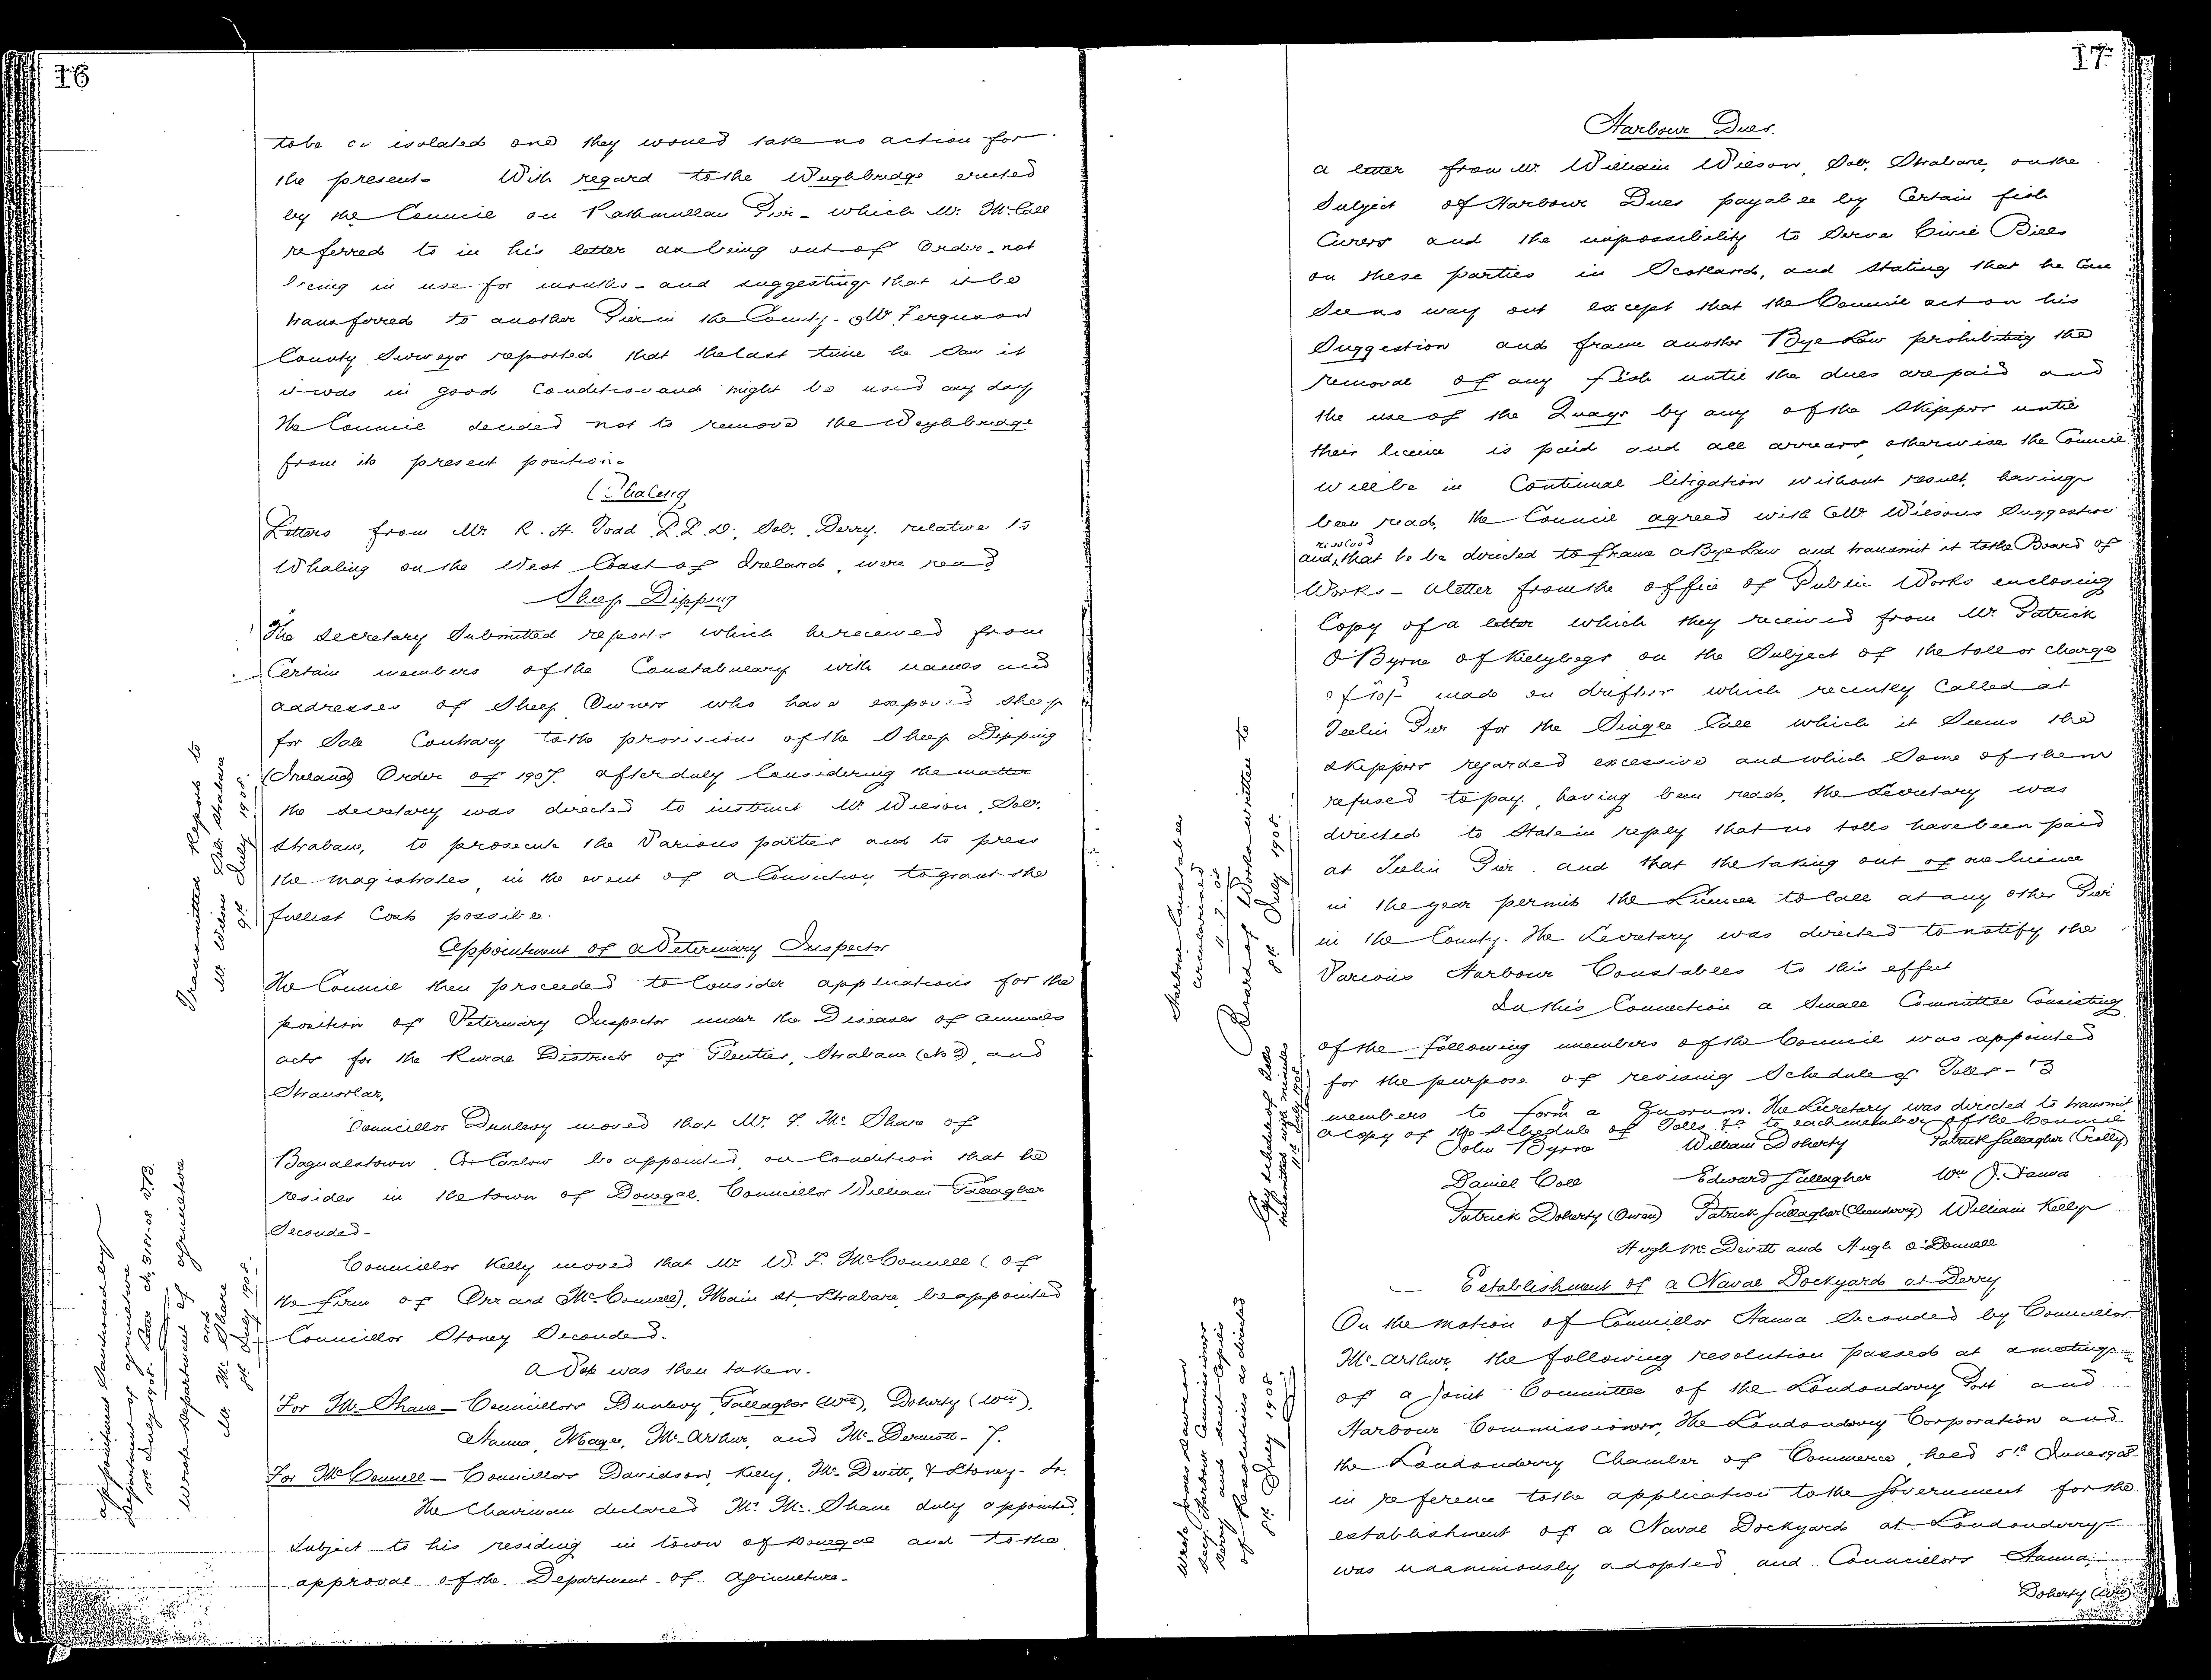 16
to be an isolated one they would take no action for
the present - With regard to the Weighbridge erected
by the Council on Rathmullan Pier - which Mr. McCall
referred to in his letter as being out of Order - not
being in use for months - and suggesting that it be
transferred to another Pier in the County - Mr Ferguson
County Surveyor reported that the last time he Saw it
it was in good Condition and might be used any day
The Council decided not to remove the Weighbridge
from its present position -
Whaling
Letters from Mr. R. H. Todd L.L.D. Solr. Derry. relative to
Whaling on the West Coast of Ireland, were read
Sheep Dipping
The Secretary Submitted reports which he received from
Certain members of the Constabulary with names and
addresses of Sheep Owners who have exposed Sheep
for Sale Contrary to the provisions of the Sheep Dipping
(Ireland) Order of 1907. After duly Considering the matter
the Secretary was directed to instruct Mr Wilson, Solr.
Strabane, to prosecute the Various parties and to press
the magistrates, in the event of a Conviction to grant the
fullest Costs possible.
Appointment of a Veterinary Inspector
The Council then proceeded to Consider applications for the
position of Veterinary Inspector under the Diseases of Animals
acts for the Rural Districts of Glenties, Strabane (No 2), and
Stranorlar.
Councillor Dunlevy moved that Mr. T. Mc Shane of
Bagnalstown Co Carlow be appointed, on Condition that he
resides in the town of Donegal. Councillor William Gallagher
Seconded -
Councillor Kelly moved that Mr W. F. McConnell (of
the firm of Orr and McConnell), Main St, Strabane, be appointed
Councillor Stoney Seconded.
A Vote was then taken.
For Mc Shane - Councillors Dunlevy, Gallagher (Wm), Doherty (Wm),
Hanna, Magee, McArthur, and McDermott - 7.
For McConnell - Councillors Davidson, Kelly, Mc Devitt, & Stoney - 4.
The Chairman declared Mr Mc Shane duly appointed,
Subject to his residing in town of Donegal and to the
approval of the Department of Agriculture -
Transmitted Reports to
Mr Wilson Solr Strabane
9th July 1908.
Appointment Sanctioned by
Department of Agriculture
15th July 1908.
Wrote Department of Agriculture
and
Mr. Mc Shane
8th July 1908.
17
Harbour Dues.
A letter from Mr. William Wilson, Solr. Strabane, on the
Subject of Harbour Dues payable by Certain fish
Curers and the impossibility to Serve Civil Bills
on these parties in Scotland, and Stating that he Can
See no way out except that the Council act on his
Suggestion and frame another Bye Law prohibiting the
removal of any fish until the dues are paid and
the use of the Quays by any of the Skippers until
their licence is paid and all arrears, otherwise the Council
will be in Continual litigation without result, having
been read, the Council agreed with Mr Wilsons Suggestion
resolved
and, that he be directed to frame a Bye Law and transmit it to the Board of
Works - A letter from the Office of Public Works enclosing
Copy of a letter which they received from Mr. Patrick
O'Byrne of Killybegs on the Subject of the toll or charge
of 10/- made on drifters which recently Called at
Teelin Pier for the Single Call which it Seems the
Skippers regarded excessive and which Some of them
refused to pay, having been read, the Secretary was
directed to State in reply that no tolls have been paid
at Teelin Pier. and that the taking out of one licence
in the year permits the Licencee to Call at any other Pier
in the County. The Secretary was directed to notify the
Various Harbour Constables to this effect
In this Connection a Small Committee Consisting
of the following members of the Council was appointed
for the purpose of revising Schedule of Tolls - 3
members to form a Quorum. The Secretary was directed to transmit
a Copy of the Schedule of Tolls &c to each member of the Council
John Byrne William Doherty Patrick Gallagher (Crolly)
Daniel Coll Edward Gallagher Wm J. Hanna
Patrick Doherty (Owen) Patrick Gallagher (Cleendarry) William Kelly
Hugh Mc Devitt and Hugh O'Donnell
Establishment of a Naval Dockyard at Derry
On the motion of Councillor Hanna Seconded by Councillor
McArthur, the following resolution passed at a meeting
of a Joint Committee of the Londonderry Port and
Harbour Commissioners, The Londonderry Corporation and
the Londonderry Chamber of Commerce, held 5th June 1908
in reference to the application to the Government for the
establishment of a Naval Dockyard at Londonderry
was unanimously adopted and Councillors Hanna,
Doherty (Wm)
Harbour Constables
circularised
11.7.08
Board of Works written to
8th July 1908.
Copy Schedule of Tolls
transmitted with minutes
11th July 1908
Secy Harbour Commissioners
Derry and sent copies
of Resolutions as directed
8th July 1908.